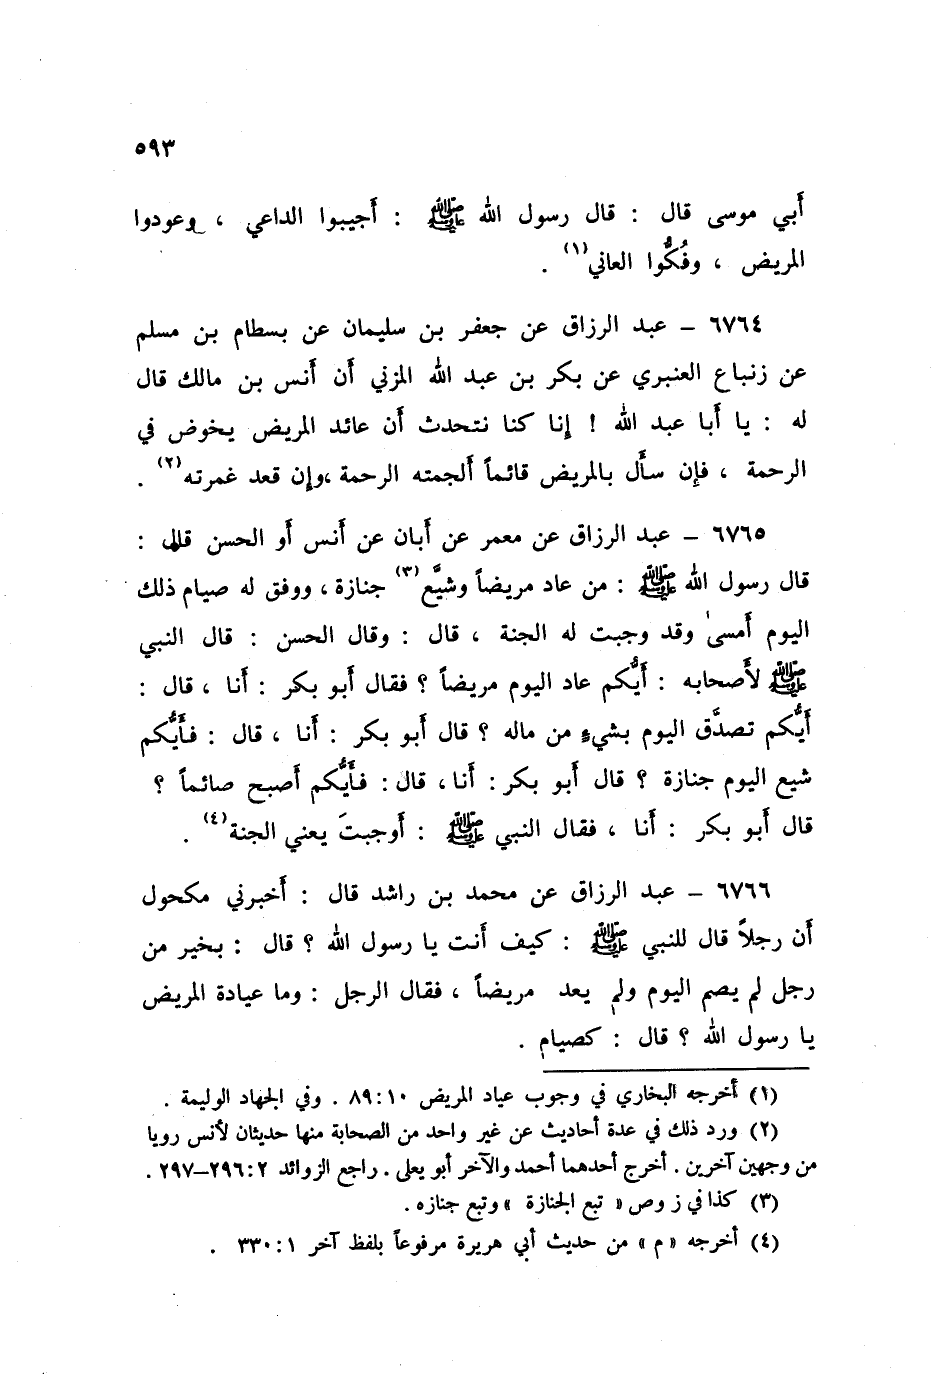 ٥٩٣
أَبي موسى قال : قال رسول الله ﷺ : أَجيبوا الداعي ، وعودوا
المريض ، وفُكُّوا العاني(١) .
٦٧٦٤ – عبد الرزاق عن جعفر بن سليمان عن بسطام بن مسلم
عن زنباع العنبري عن بكر بن عبد الله المزني أَن أَنس بن مالك قال
له : يا أَبا عبد الله ! إنا كنا نتحدث أَن عائد المريض يخوض في
الرحمة ، فإن سأَل بالمريض قائماً أَلجمته الرحمة ،وإن قعد غمرته(٢) .
٦٧٦٥ – عبد الرزاق عن معمر عن أَبان عن أَنس أَو الحسن :
قال رسول الله ﷺ : من عاد مريضاً وشيَّع(٣) جنازة ، ووفق له صيام ذلك
اليوم أَمسىٰ وقد وجبت له الجنة ، قال : وقال الحسن : قال النبي
ﷺ لأَصحابه : أَيُّكم عاد اليوم مريضاً ؟ فقال أَبو بكر : أَنا ، قال :
أَيُّكم تصدَّق اليوم بشيءٍ من ماله ؟ قال أَبو بكر : أَنا ، قال : فأَيُّكم
شيع اليوم جنازة ؟ قال أَبو بكر : أَنا ، قال : فأَيُّكم أَصبح صائماً ؟
قال أَبو بكر : أَنا ، فقال النبي ﷺ : أَوجبتَ يعني الجنة(٤) .
٦٧٦٦ – عبد الرزاق عن محمد بن راشد قال : أَخبرني مكحول
أَن رجلاً قال للنبي ﷺ : كيف أَنت يا رسول الله ؟ قال : بخير من
رجل لم يصم اليوم ولم يعد مريضاً ، فقال الرجل : وما عيادة المريض
يا رسول الله ؟ قال : كصيام .
(١) أخرجه البخاري في وجوب عياد المريض ١٠ : ٨٩ . وفي الجهاد الوليمة .
(٢) ورد ذلك في عدة أحاديث عن غير واحد من الصحابة منها حديثان لأنس رويا
من وجهين آخرين . أخرج أحدهما أحمد والآخر أبو يعلى . راجع الزوائد ٢ : ٢٩٦–٢٩٧ .
(٣) كذا في ز وص « تبع الجنازة » وتبع جنازه .
(٤) أخرجه « م » من حديث أبي هريرة مرفوعاً بلفظ آخر ١ : ٣٣٠ .